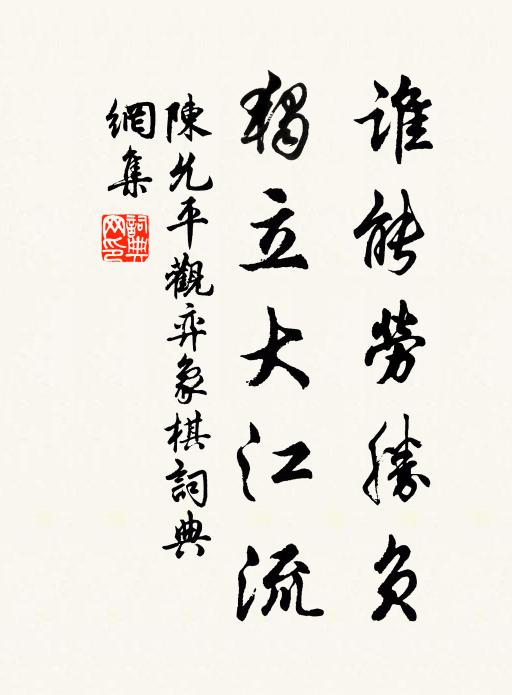 誰能勞勝負
獨立大江流
陳允平觀弈象棋詞典
網集
詞典网印